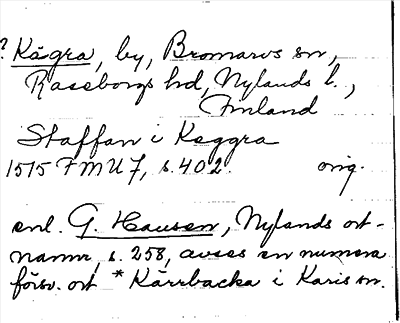 ? Kågra, by, Bromarvs sn,
Raseborgs hd, Nylands l.,
Finland
Staffan i Keggra
1515 FMU 7, s. 402. orig.
enl. G. Hausen, Nylands ort-
namn, s. 258, avses en numera
försv. ort *Kärrbacka i Karis sn.